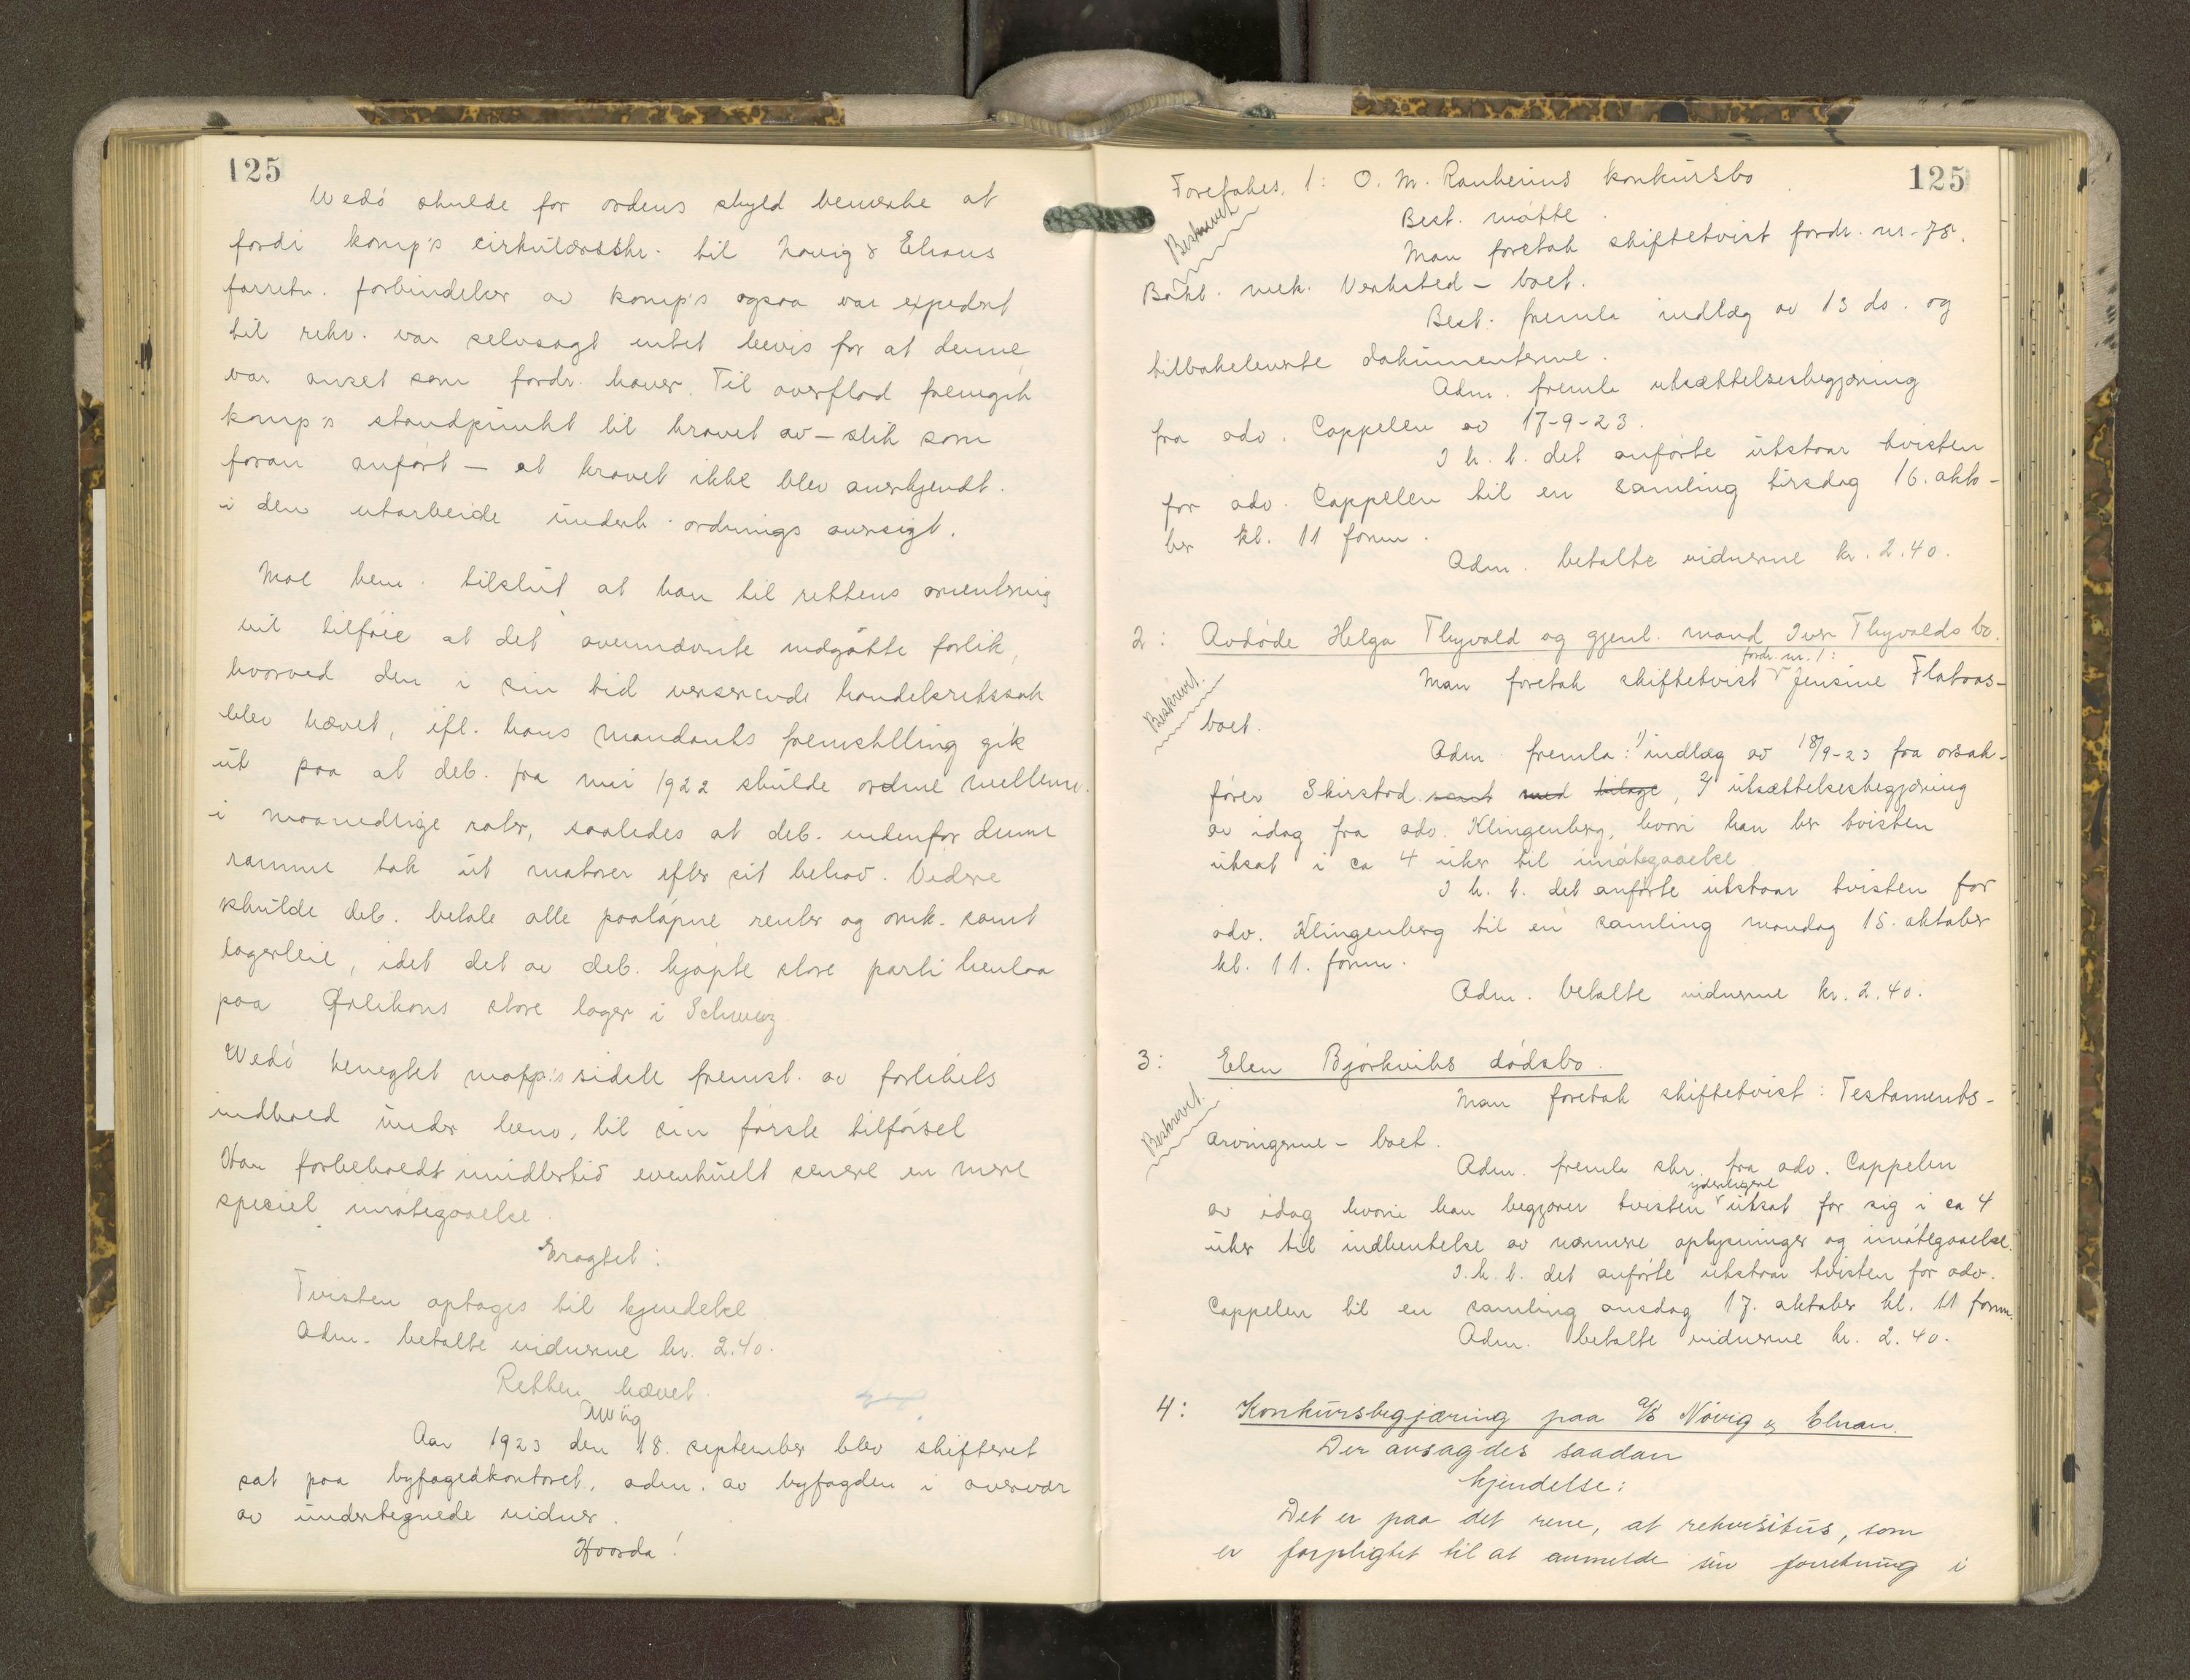 125
Wedö skulde for ordens skyld bemerke at
fordi komp's cirkulærskr. til Novig & Elnans
forretn. forbindelser av komp's ogsaa var expedert
til rekv. var selvsagt intet bevis for at denne
var anset som fordr. haver. Til overflod fremgik
komp's standpunkt til kravet av – slik som
foran anført – at kravet ikke blev anerkjendt
i den utarbeide underh. ordnings oversigt.
Moe bem. tilslut at han til rettens orientering
vil tilføie at det ovennævnte indgåtte forlik,
hvorved den i sin tid verserende handelsretssak
blev hævet, ifl. hans mandants fremstilling gik
ut paa at deb. fra mai 1922 skulde ordne mellem.
i maanedlige rater, saaledes at deb. indenfor denne
ramme tok ut motorer efter sit behov. Videre
skulde deb. betale alle paaløpne renter og omk. samt
lagerleie, idet det av deb. kjøpte store parti henlaa
paa Ørlikons store lager i Schweiz
Wedö benegtet motp.'s sidste fremst. av forlikets
indhold under henv. til sin første tilførsel
Han forbeholdt imidlertid eventuelt senere en mere
speciel imøtegaaelse.
Eragtet:
Tvisten optages til kjendelse
Adm. betalte vidnerne kr. 2.40.
Retten hævet.
Aar 1923 den 18. september blev skifteret
sat paa byfogedkontoret, adm. av byfogden i overvær
av undertegnede vidner.
Hvorda!
125
Foretokes 1: O. M. Rauheims konkursbo
Beskrevet
Best. møtte.
Man foretok skiftetvist fordr. nr. 78.
Bakl. mek. Verksted – boet.
Best. fremla indlæg av 13 ds. og
tilbakeleverte dokumenterne.
Adm. fremla utsættelsesbegjæring
fra adv. Cappelen av 17-9-23.
I h. t. det anførte utstaar tvisten
for adv. Cappelen til en samling tirsdag 16. okto-
ber kl. 11 form.
Adm. betalte vidnerne kr. 2.40.
2: Avdøde Helga Thyvold og gjenl. mand Iver Thyvolds bo.
fordr. nr. 1:
Man foretok skiftetvist Jensine Flataas-
Beskrevet.
boet.
Adm. fremla: 1) indlæg av 18/9-23 fra orsak-
fører Skirstad samt med bilage, 2) utsættelsesbegjæring
av idag fra adv. Klingenberg, hvori han ber tvisten
utsat i ca 4 uker til imøtegaaelse
I h. t. det anførte utstaar tvisten for
adv. Klingenberg til en samling mandag 15. oktober
kl. 11. form.
Adm. betalte vidnerne kr. 2.40.
3: Elen Bjørkviks dødsbo.
Man foretok skiftetvist: Testaments-
Beskrevet.
arvingerne – boet.
Adm. fremla skr. fra adv. Cappelen
yderligere
av idag hvori han begjærer tvisten utsat for sig i ca 4
uker til indhentelse av nærmere oplysninger og imøtegaaelse.
I. h. t. det anførte utstaar tvisten for adv.
Cappelen til en samling onsdag 17. oktober kl. 11 form.
Adm. betalte vidnerne kr. 2.40.
4: Konkursbegjæring paa a/s Növig & Elnan.
Der avsagdes saadan
kjendelse:
Det er paa det rene, at rekvisitus, som
er forpligtet til at anmelde sin forretning i